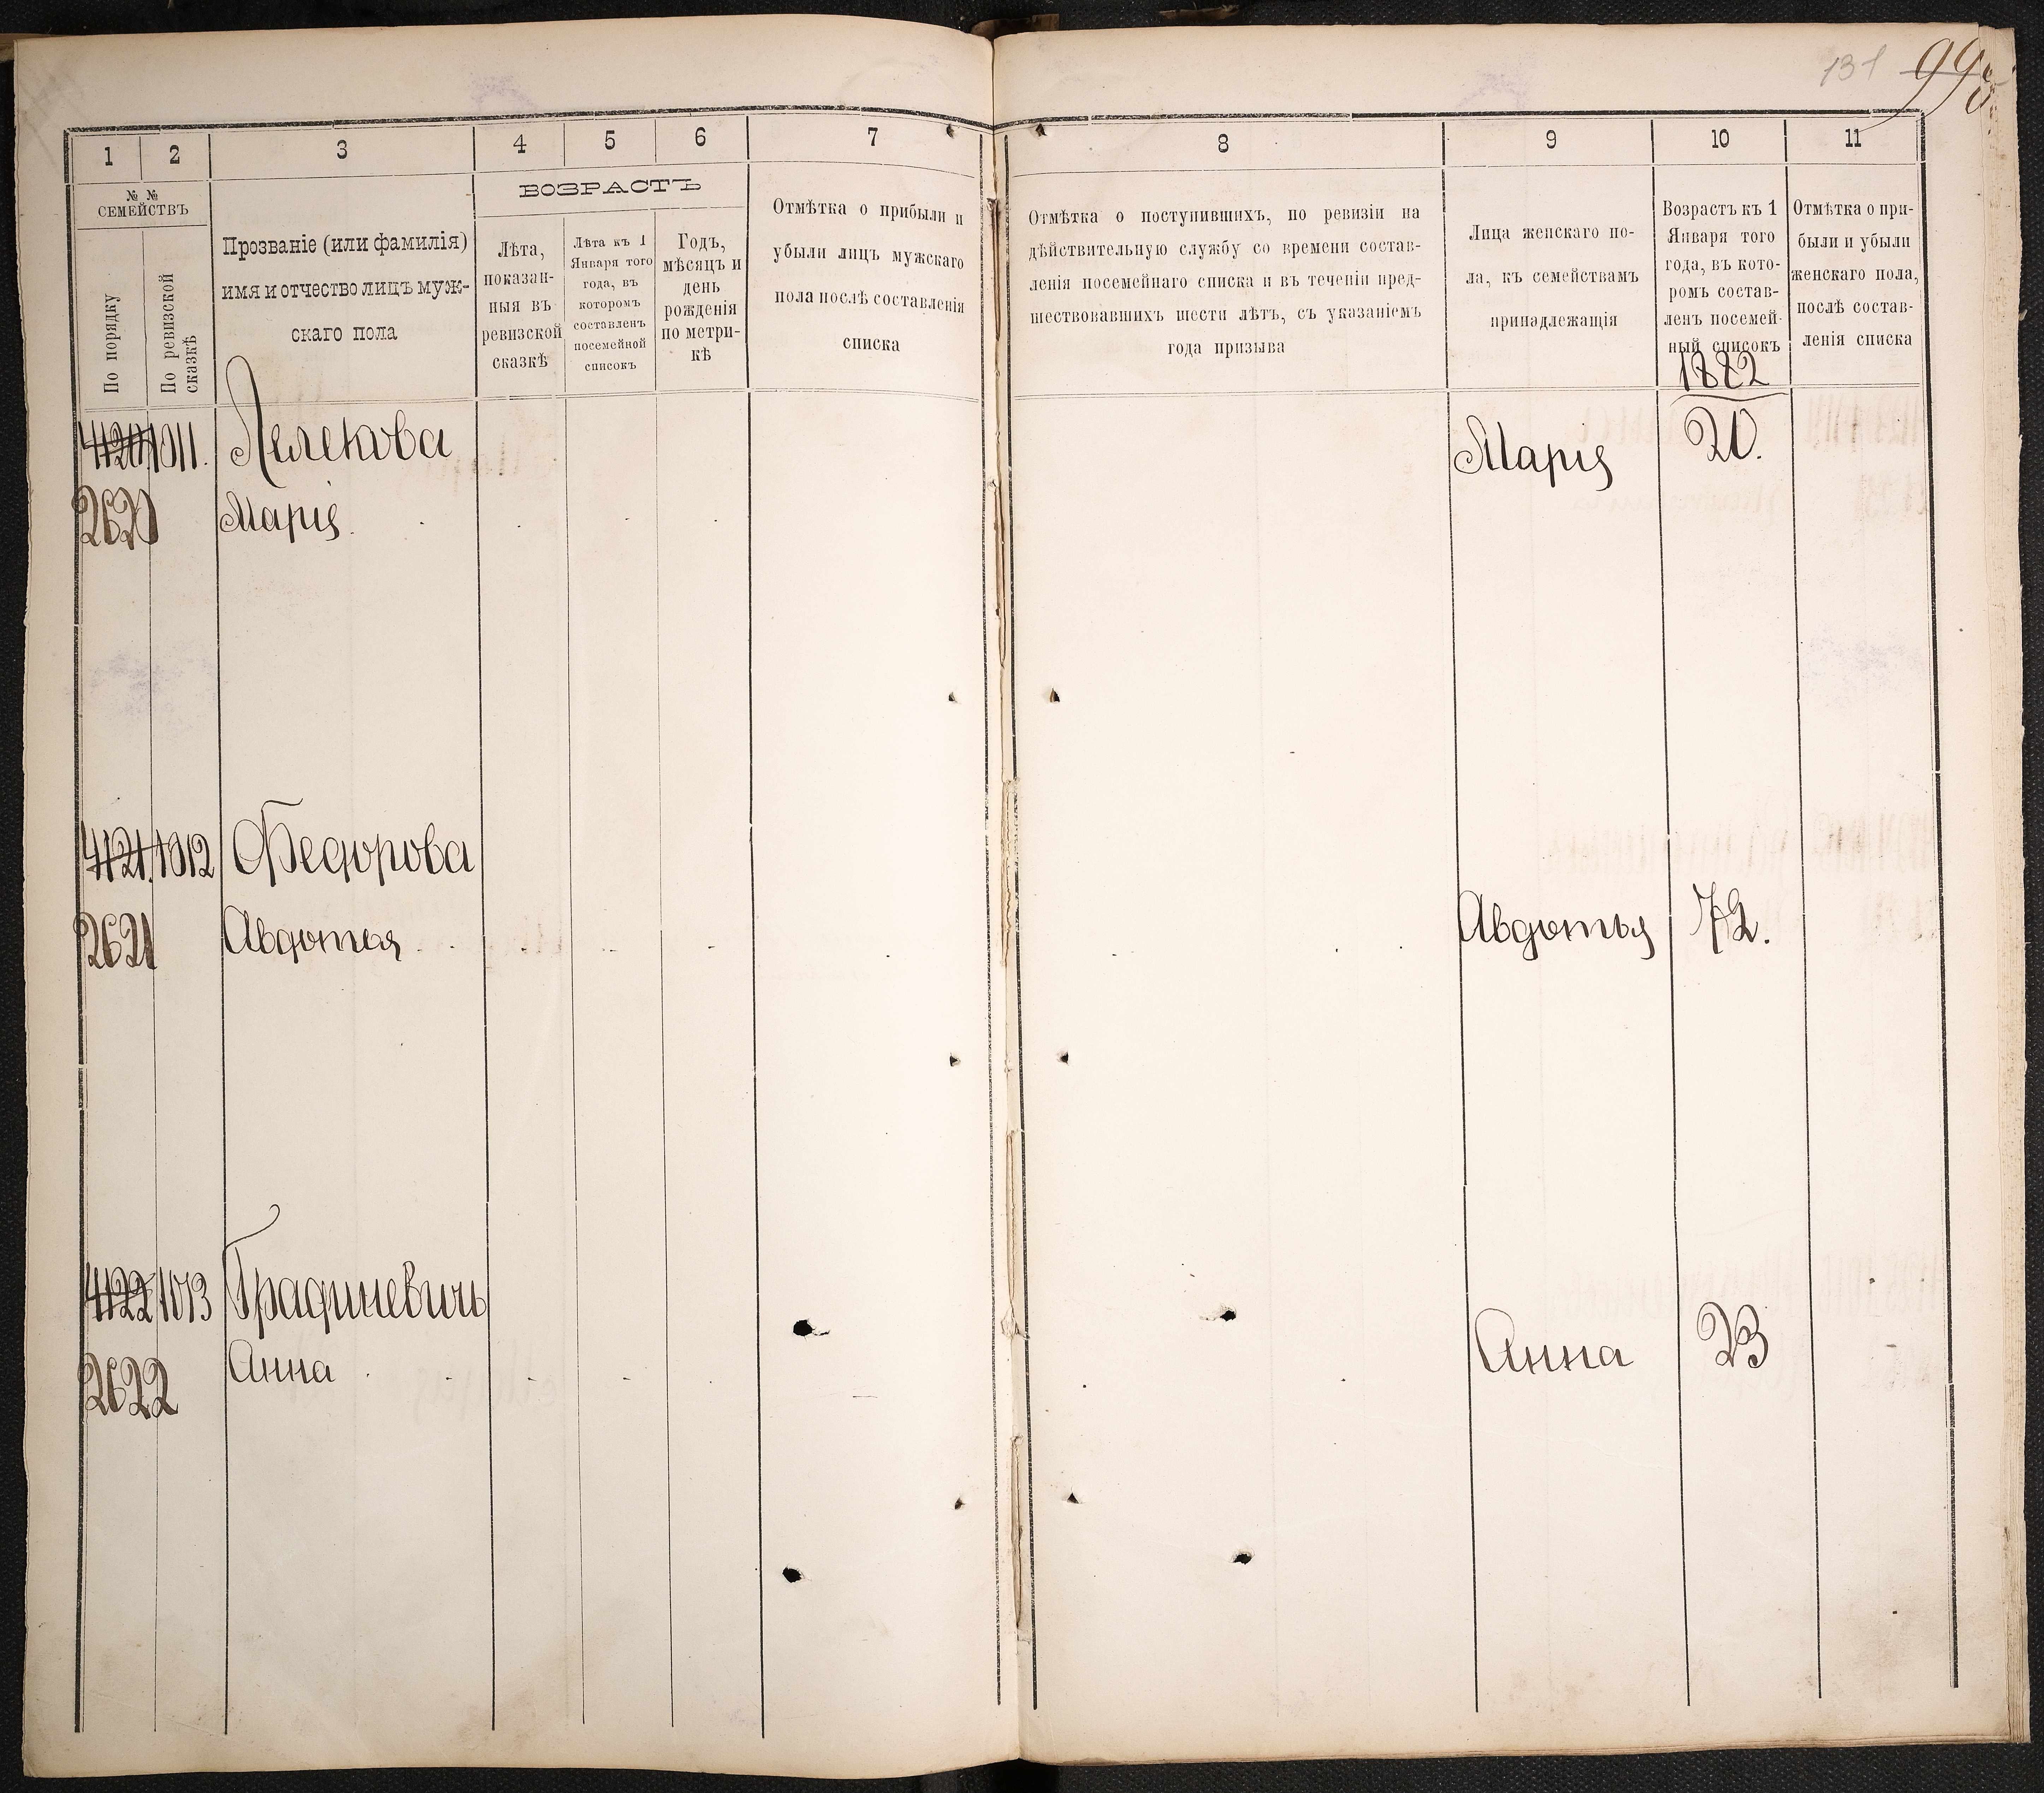 131 995
1 2 3 4 5 6 7
№ № СЕМЕЙСТВЪ
По порядку
По ревизской сказкѣ
Прозваніе (или фамилія)
имя и отчество лицъ муж-
скаго пола
ВОЗРАСТЪ
Лѣта,
показан-
ныя въ
ревизской
сказкѣ
Лѣта къ 1
Января того
года, въ
которомъ
составленъ
посемейной
списокъ
Годъ,
мѣсяцъ и
день
рожденія
по метри-
кѣ
Отмѣтка о прибыли и
убыли лицъ мужскаго
пола послѣ составленія
списка
4120 1011. Лелекова
2620 Марія.
4121. 1012 Федорова
2621 Авдотья
4122 1013
2622 Анна
8 9 10 11
Отмѣтка о поступившихъ, по ревизіи на
дѣйствительную службу со времени состав-
ленія посемейнаго списка и въ теченіи пред-
шествовавшихъ шести лѣтъ, съ указаніемъ
года призыва
Лица женскаго по-
ла, къ семействамъ
принадлежащія
Возрастъ къ 1
Января того
года, въ кото-
ромъ состав-
ленъ посемей-
ный списокъ
1882
Отмѣтка о при-
были и убыли
женскаго пола,
послѣ состав-
ленія списка
Марія 20.
Авдотья 72.
Анна 23